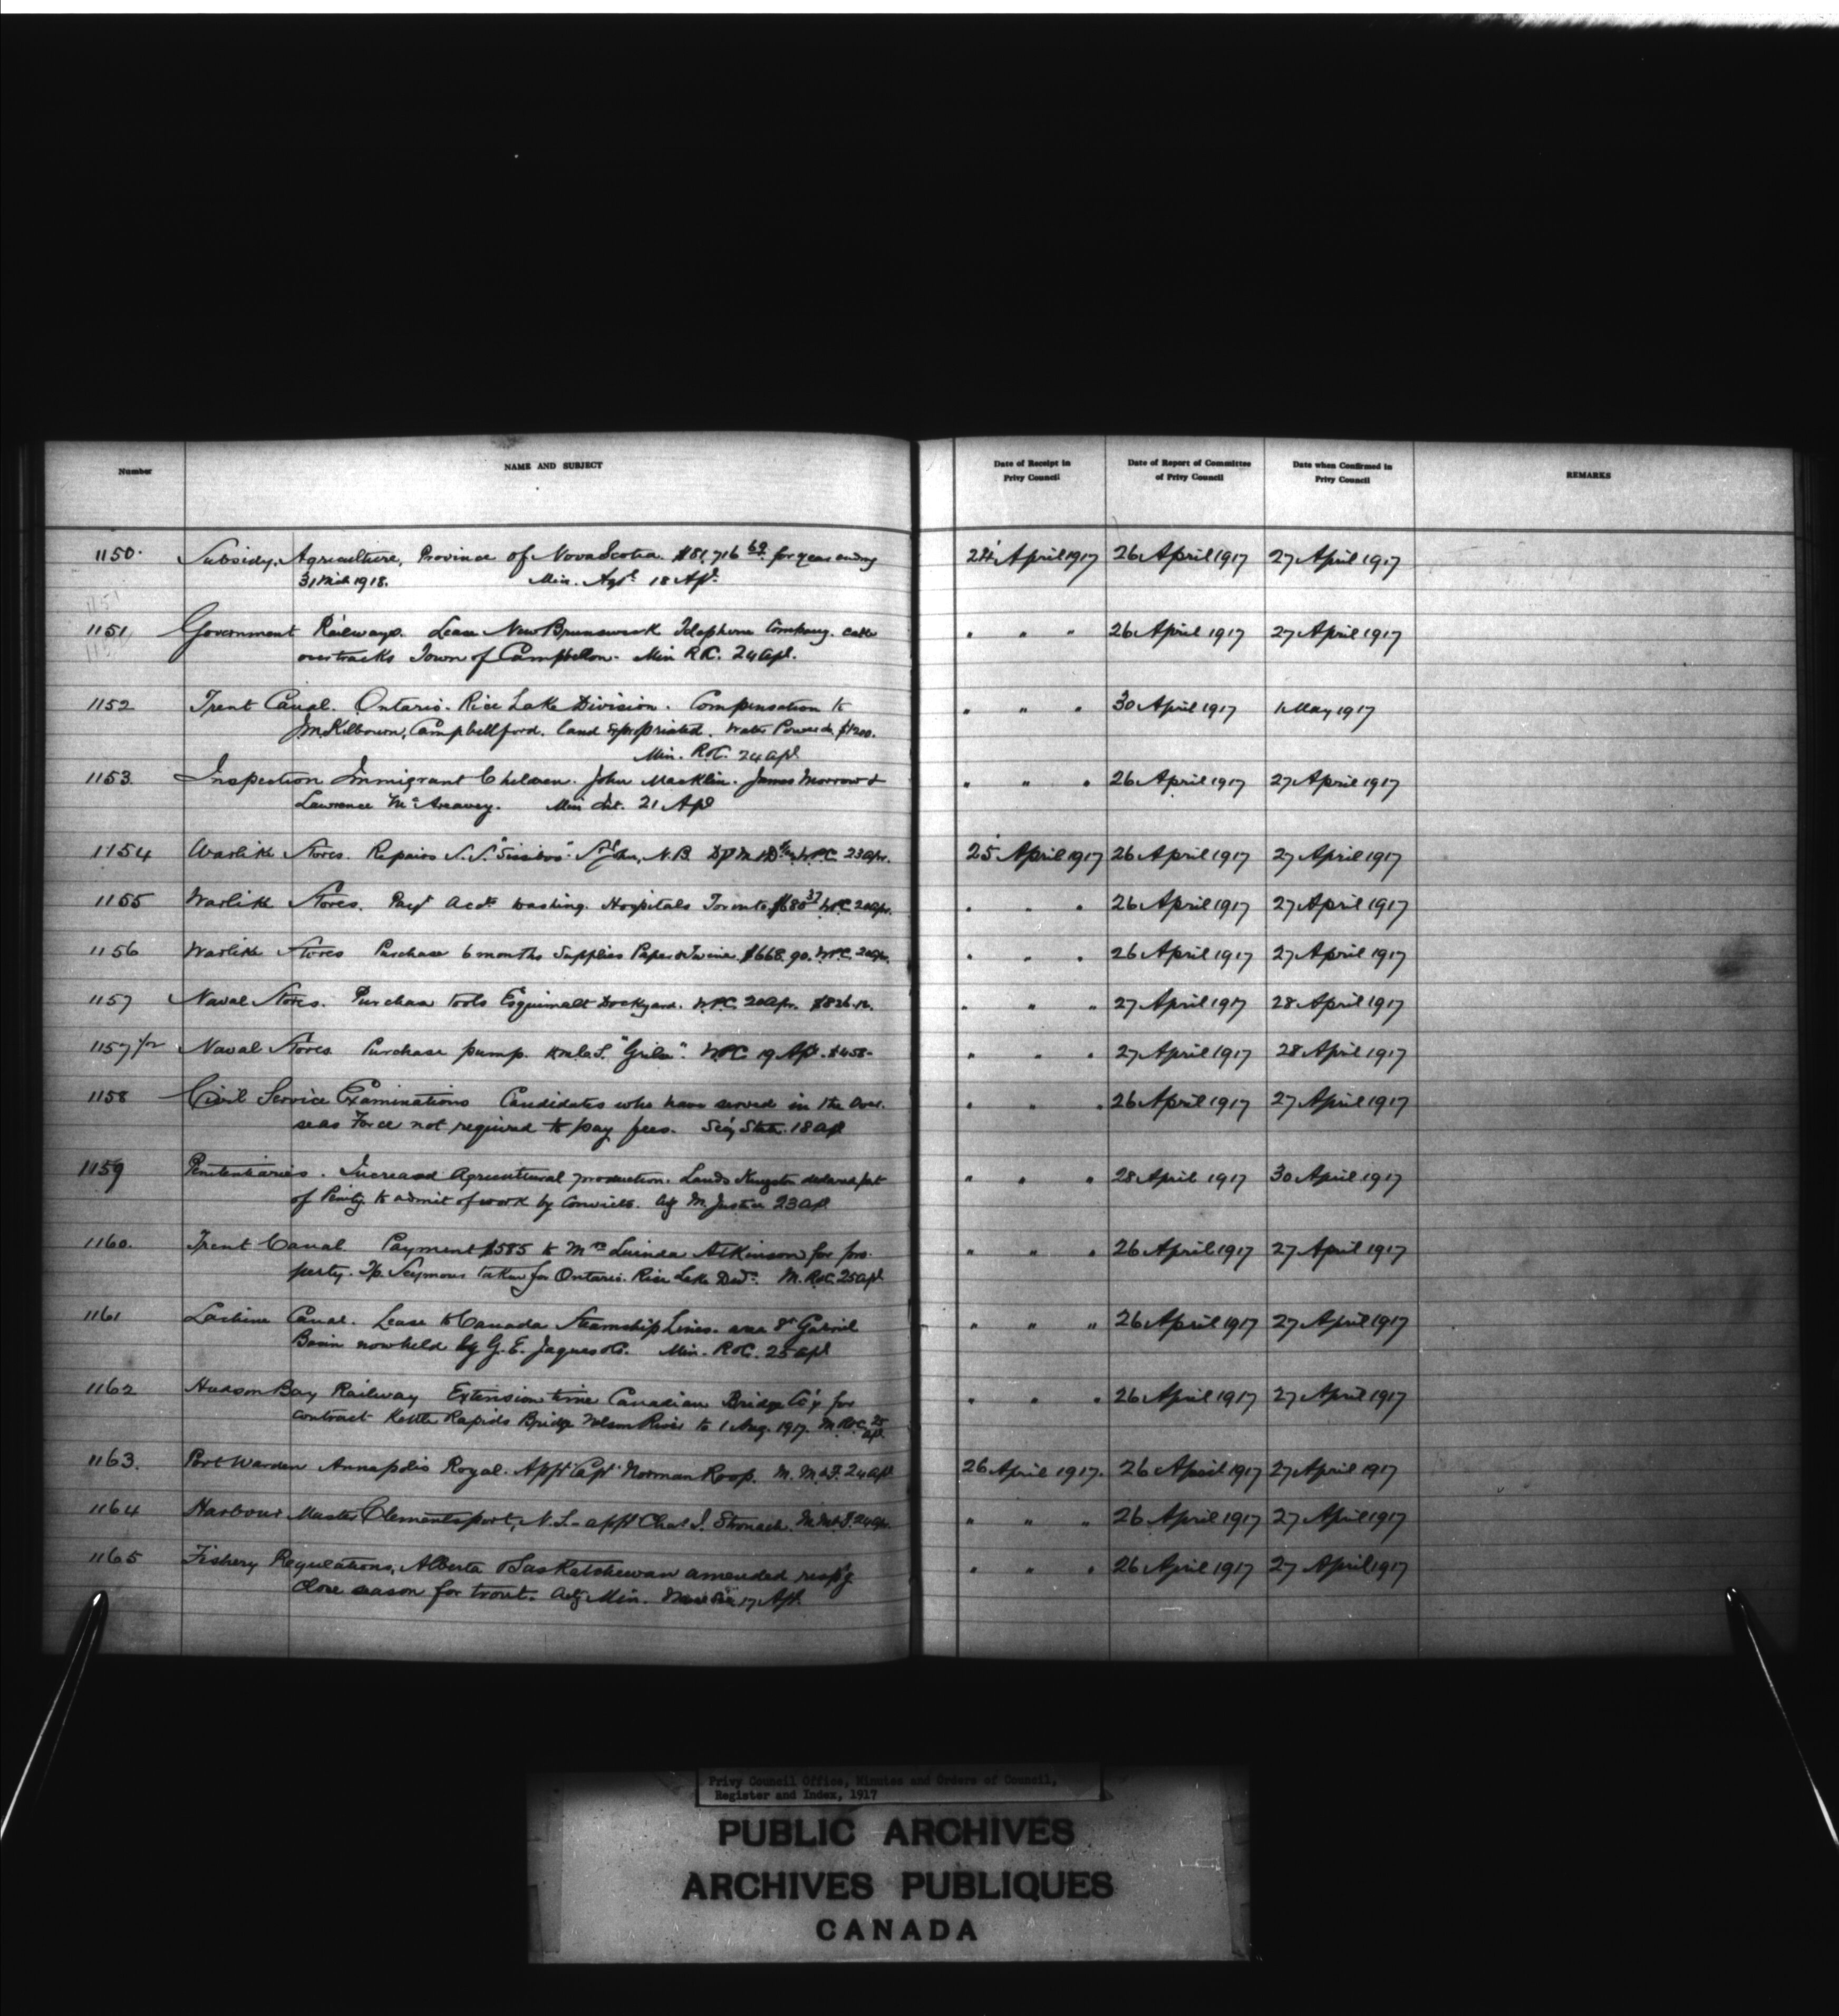 Number
NAME AND SUBJECT
Date of Receipt in
Privy Council
Date of Report of Committee
of Privy Council
Date when Confirmed in
Privy Council
REMARKS
1150. Subsidy. Agriculture, Province of Nova Scotia. $81,716 69 for year ending 24 April 1917 26 April 1917 27 April 1917
31 Mch 1918. Min. Agr 18 Apl.
1151 Government Railways. Lease New Brunswick Telephone Company. cable " " " 26 April 1917 27 April 1917
over tracks Town of Campbellton. Min R&C. 24 Apl.
1152 Trent Canal. Ontario-Rice Lake Division. Compensation to " " " 30 April 1917 1 May 1917
J.M. Kilbourn, Campbellford. land expropriated. Water Power &c $1200.
Min. R&C. 24 Apl
1153 Inspection Immigrant Children. John Macklin. James Morrow & " " " 26 April 1917 27 April 1917
Lawrence McAreavey. Min Int. 21 Apl
1154 Warlike Stores. Repairs S.S. "Sissiboo" St John, N.B. W.P.C. 23 Apr. 25 April 1917 26 April 1917 27 April 1917
1155 Warlike Stores. Payt Acct washing Hospitals Toronto $680 37 W.P.C. 20 Apr. " " " 26 April 1917 27 April 1917
1156 Warlike Stores Purchase 6 months Supplies Paper & Twine $668.90. W.P.C. 20 Apr. " " " 26 April 1917 27 April 1917
1157 Naval Stores. Purchase tools Esquimalt Dockyard. W.P.C. 20 Apr. $826.12. " " " 27 April 1917 28 April 1917
1157 1/2 Naval Stores Purchase pump. H.M.C.S. "Grilse". W.P.C. 19 Apl. $458- " " " 27 April 1917 28 April 1917
1158 Civil Service Examinations Candidates who have served in the Over- " " " 26 April 1917 27 April 1917
seas Force not required to pay fees. Secy State. 18 Apl
1159 Penitentiaries. Increased Agricultural production. Lands Kingston declared part " " " 28 April 1917 30 April 1917
of Penity to admit of work by Convicts. Ag M. Justice 23 Apl
1160. Trent Canal Payment $585 to Mrs Lucinda Atkinson for pro- " " " 26 April 1917 27 April 1917
perty. Tp Seymour taken for Ontario-Rice Lake Divn. M. R&C. 25 Apl
1161 Lachine Canal. Lease to Canada Steamship Lines. area St Gabriel " " " 26 April 1917 27 April 1917
Basin now held by G.E. Jaques & Co. Min. R&C. 25 Apl
1162 Hudson Bay Railway Extension time Canadian Bridge Coy for " " " 26 April 1917 27 April 1917
contract Kettle Rapids Bridge Nelson River to 1 Aug. 1917. M R&C. 25 Apl.
1163. Port Warden Annapolis Royal. Appt Capt Norman Roop. M. M&F. 24 Apl 26 April 1917. 26 April 1917 27 April 1917
1164 Harbour Master Clementsport, N.S.- appt Chas. I. Stronach. M. M&F. 24 Apr. " " " 26 April 1917 27 April 1917
1165 Fishery Regulations, Alberta & Saskatchewan amended respg " " " 26 April 1917 27 April 1917
close season for trout. Actg Min. 17 Apl.
Privy Council Office, Minutes and Orders of Council,
Register and Index, 1917
PUBLIC ARCHIVES
ARCHIVES PUBLIQUES
CANADA